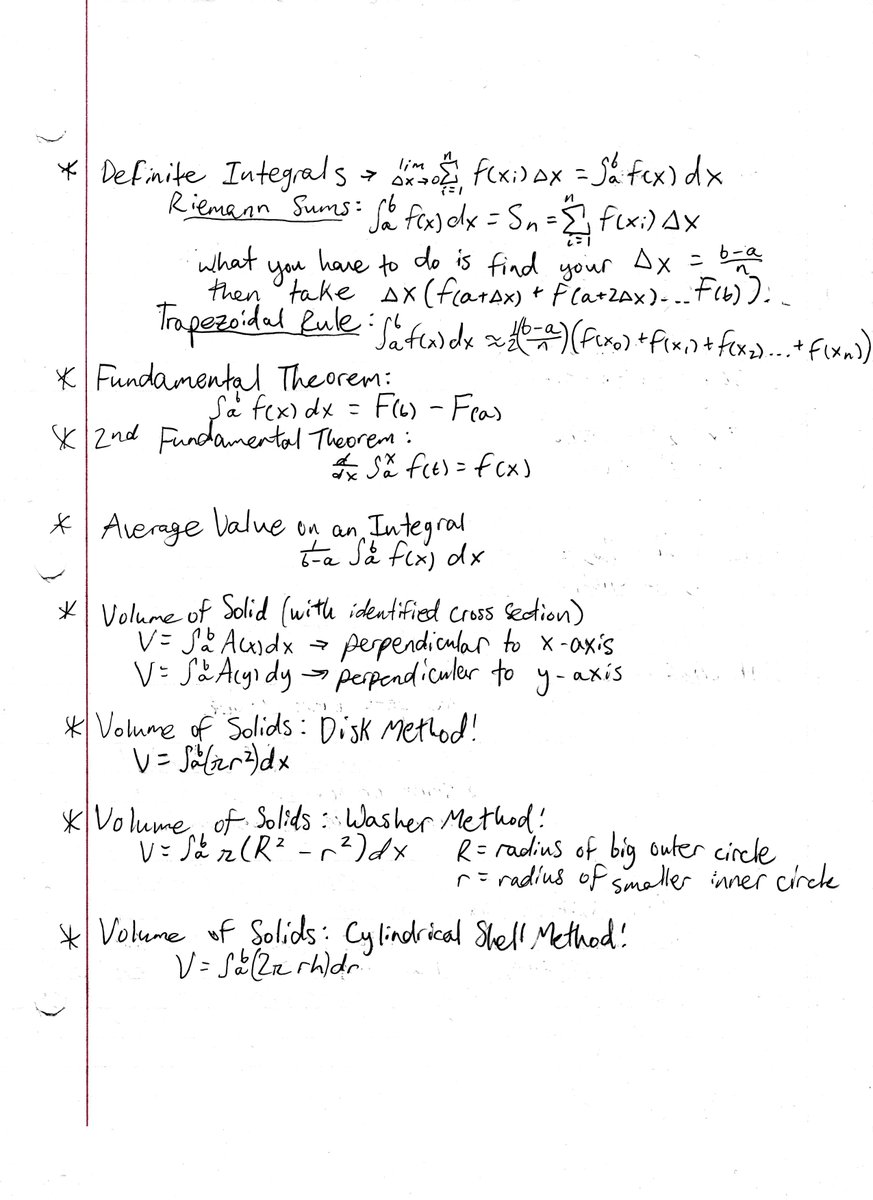 * Definite Integrals → lim Δx→0 n Σ i=1 f(xi) Δx = ∫ab f(x) dx
Riemann Sums: ∫ab f(x) dx = Sn = n Σ i=1 f(xi) Δx
What you have to do is find your Δx = b-a/n
then take Δx (f(a+Δx) + f(a+2Δx)... F(b)).
Trapezoidal Rule: ∫ab f(x) dx ≈ 1/2(b-a/n)(f(x0) + f(x1) + f(x2) ... + f(xn))
* Fundamental Theorem:
∫ab f(x) dx = F(b) - F(a)
* 2nd Fundamental Theorem:
d/dx ∫ax f(t) = f(x)
* Average Value on an Integral
1/b-a ∫ab f(x) dx
* Volume of Solid (with identified cross section)
V = ∫ab A(x) dx → perpendicular to x-axis
V = ∫ab A(y) dy → perpendicular to y-axis
* Volume of Solids: Disk Method!
V = ∫ab (πr²) dx
* Volume of Solids: Washer Method!
V = ∫ab π(R² - r²) dx R = radius of big outer circle
r = radius of smaller inner circle
* Volume of Solids: Cylindrical Shell Method!
V = ∫ab (2π rh) dr